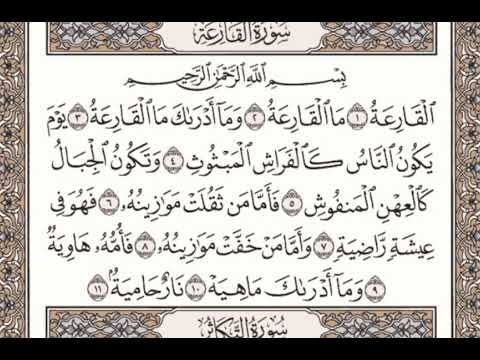 سُورَةُ القَارِعَةِ
بِسْمِ ٱللَّهِ ٱلرَّحْمَٰنِ ٱلرَّحِيمِ
ٱلْقَارِعَةُ ١ مَا ٱلْقَارِعَةُ ٢ وَمَآ أَدْرَىٰكَ مَا ٱلْقَارِعَةُ ٣ يَوْمَ
يَكُونُ ٱلنَّاسُ كَٱلْفَرَاشِ ٱلْمَبْثُوثِ ٤ وَتَكُونُ ٱلْجِبَالُ
كَٱلْعِهْنِ ٱلْمَنفُوشِ ٥ فَأَمَّا مَن ثَقُلَتْ مَوَٰزِينُهُۥ ٦ فَهُوَ فِى
عِيشَةٍ رَّاضِيَةٍ ٧ وَأَمَّا مَنْ خَفَّتْ مَوَٰزِينُهُۥ ٨ فَأُمُّهُۥ هَاوِيَةٌ
٩ وَمَآ أَدْرَىٰكَ مَا هِيَهْ ١٠ نَارٌ حَامِيَةٌۢ ١١
سُورَةُ التَّكَاثُرِ